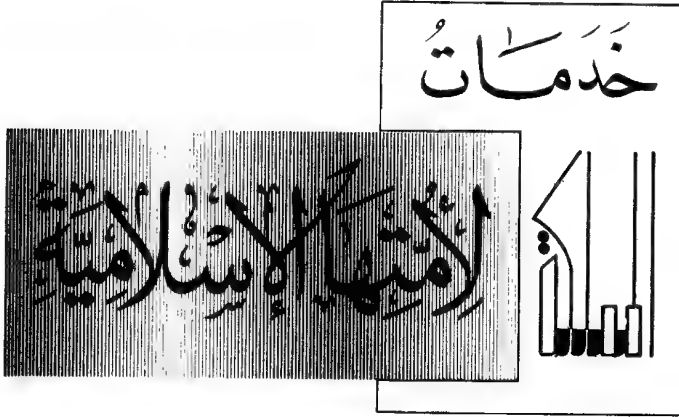 خَدَمَاتُ
المملكة
لِأُمَّتِهَا الْإِسْلَامِيَّةِ